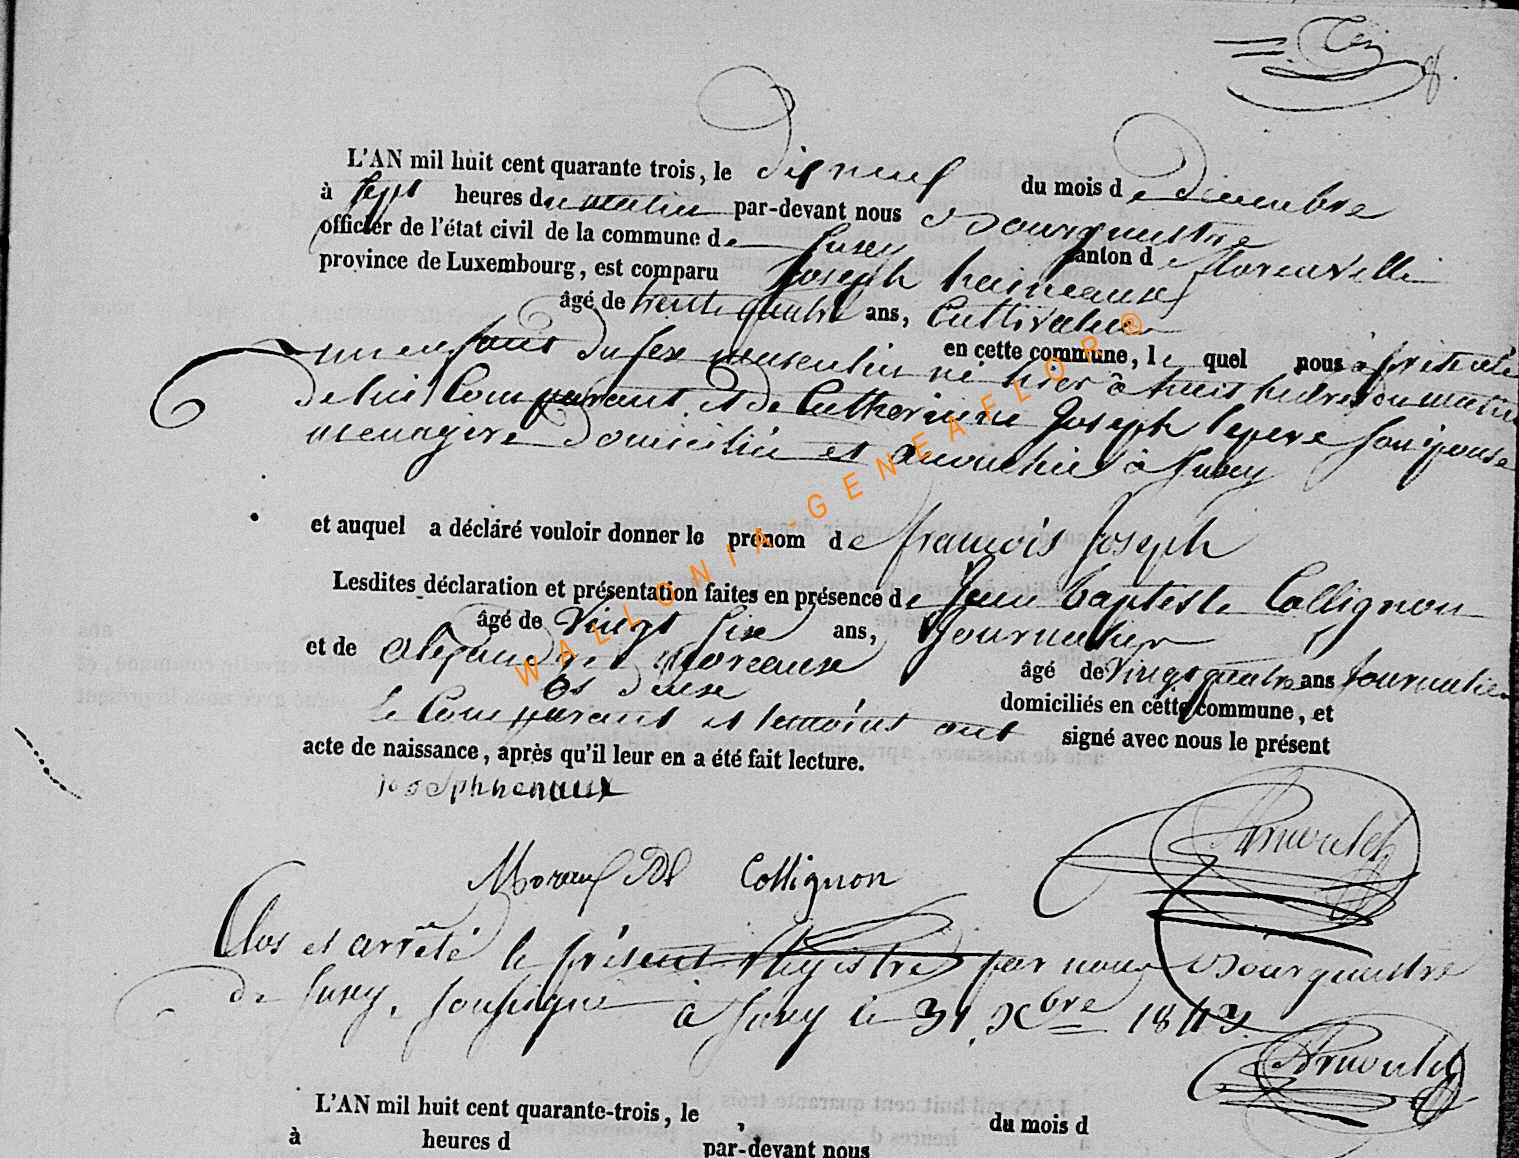 8.
L'AN mil huit cent quarante trois, le dix neuf du mois de Décembre
à sept heures du matin par-devant nous Bourguestre
officier de l'état civil de la commune de Suxy canton de florenville
province de Luxembourg, est comparu Joseph henneaux
âgé de trente quatre ans, Cultivateur
en cette commune, lequel nous a présenté
un enfant du sexe masculin né hier à huit heures du matin
de lui Comparant et de Catherinne Joseph lepere son épouse
menagère domiciliée et accouchée à Suxy
et auquel a déclaré vouloir donner le prénom de françois Joseph
Lesdites déclaration et présentation faites en présence de Jean baptiste Collignon
âgé de Vingt six ans, Journalier
et de moreaux âgé de Vingt quatre ans Journalier
domiciliés en cette commune, et
le Comparant et temoins ont signé avec nous le présent
acte de naissance, après qu'il leur en a été fait lecture.
josephhenaux
Collignon
Clos et arrêté le présent Régistre par nous Bourguestre
de Suxy, soussigné à Suxy le 31 Xbre 1843
L'AN mil huit cent quarante-trois, le du mois d
à heures d par-devant nous
WALLONIA-GENEAFLOR®